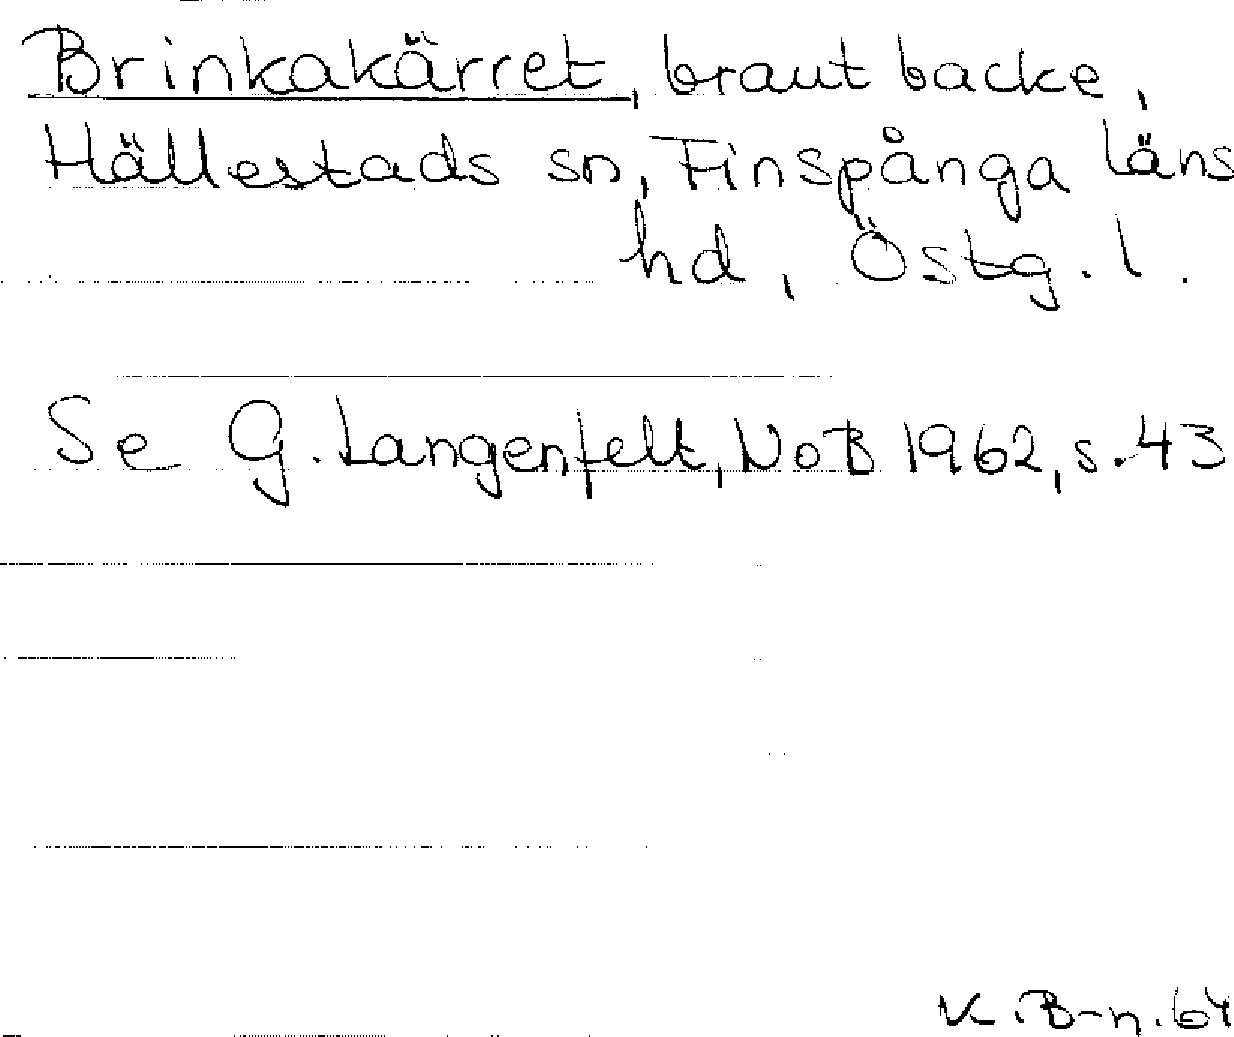 Brinkakärret, braut backe,
Hällestads sn, Finspånga läns
hd, Östg. l.
Se G. Langenfelt, NoB 1962, s. 43
K. B-n. 64